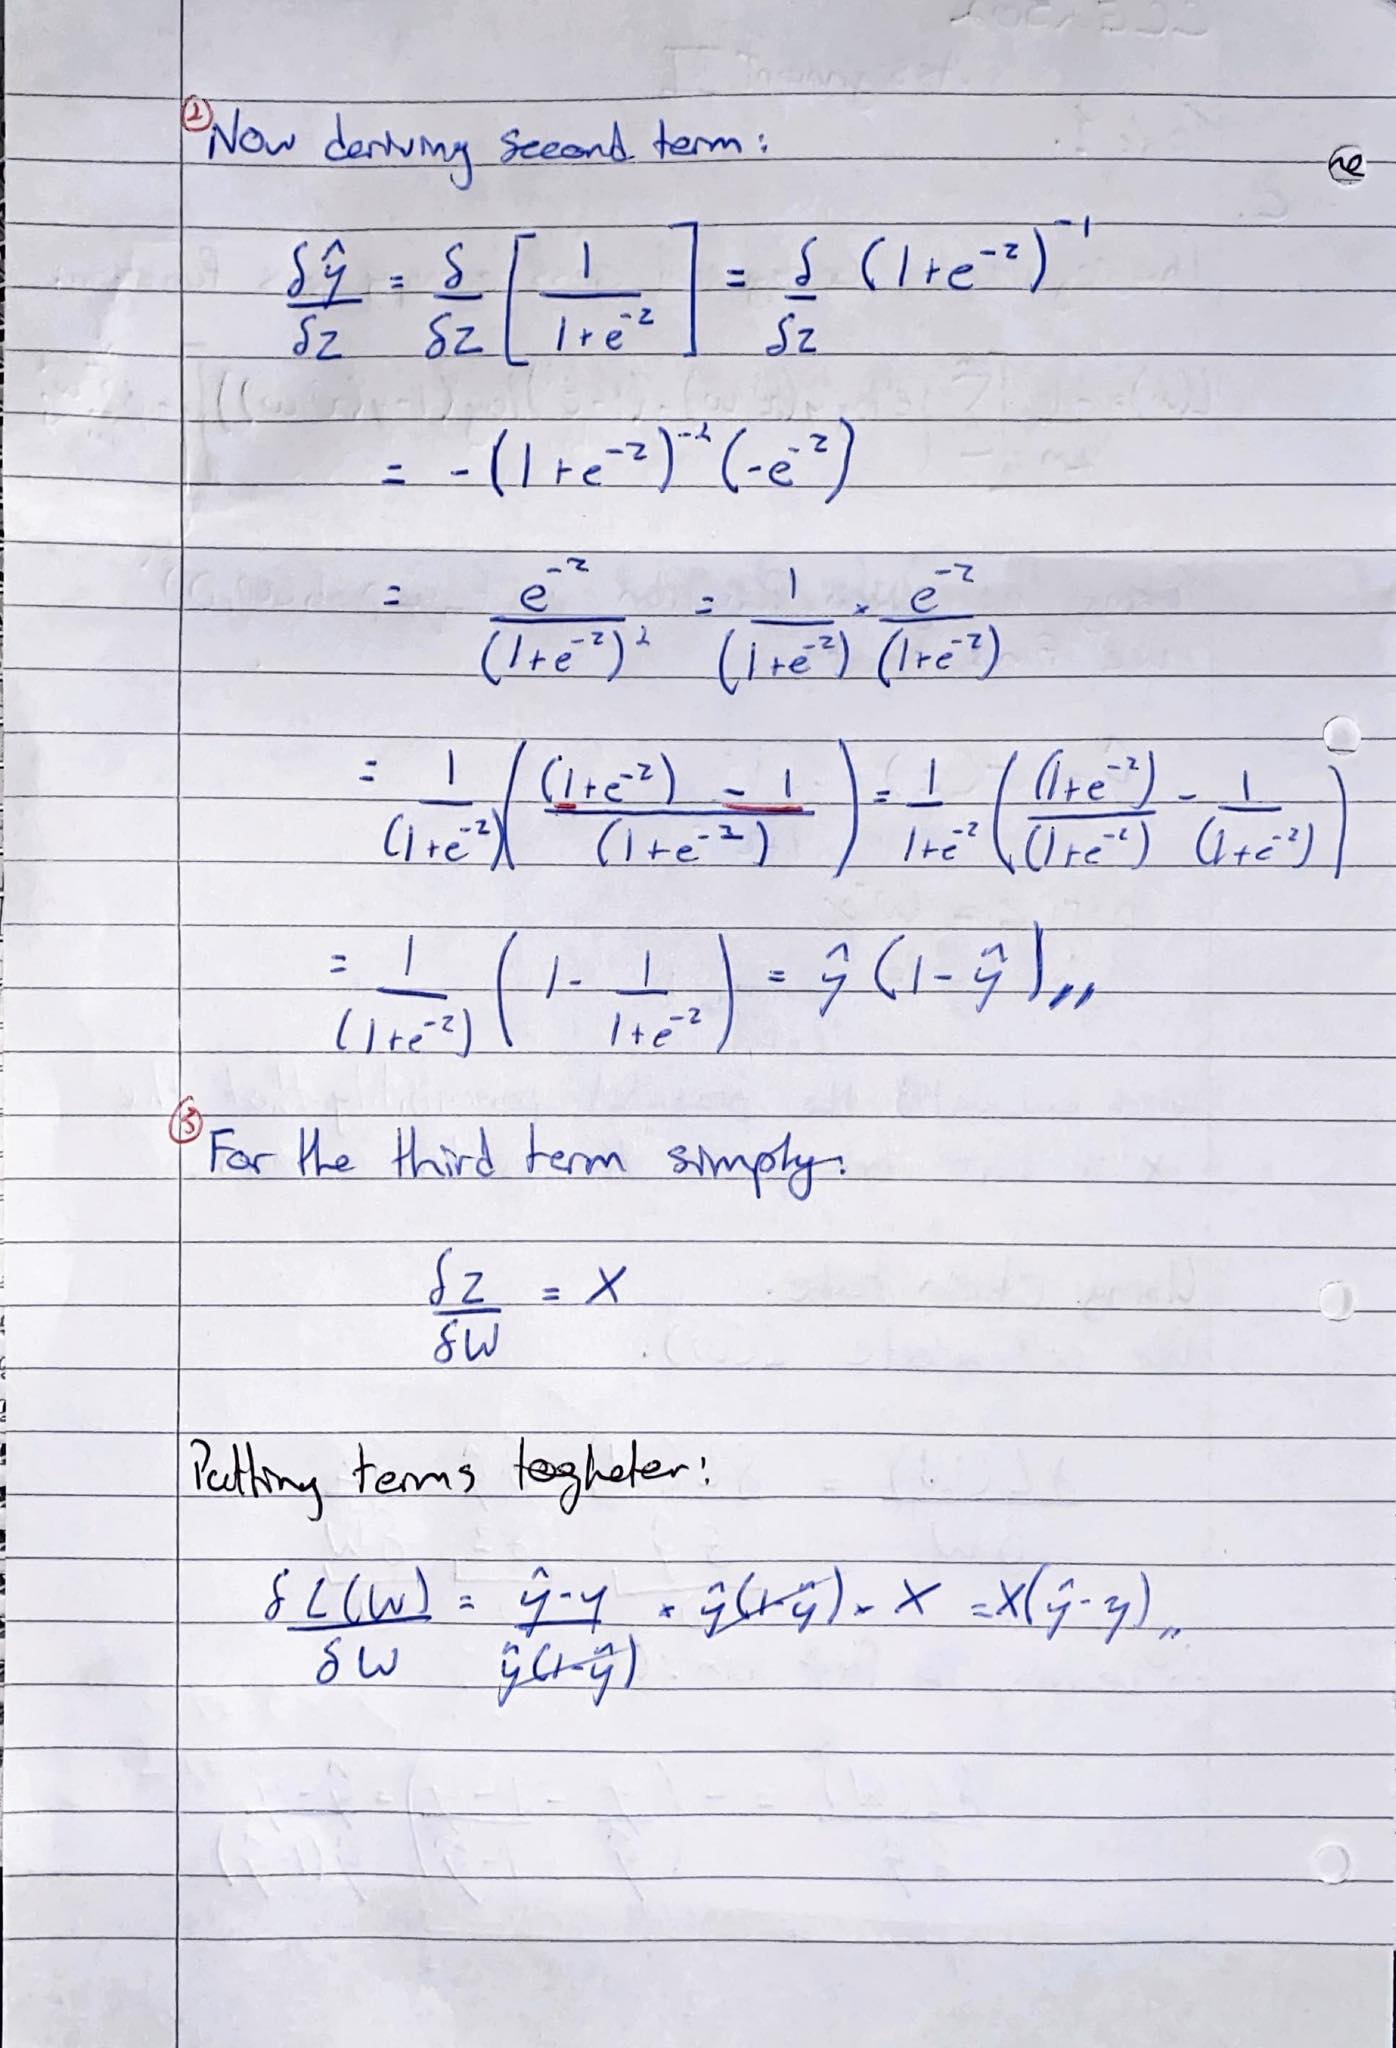 ② Now deriving second term:
δŷ/δz = δ/δz [1/(1+e^-z)] = δ/δz (1+e^-z)^-1
= -(1+e^-z)^-2 (-e^-z)
= e^-z/(1+e^-z)^2 = 1/(1+e^-z) × e^-z/(1+e^-z)
= 1/(1+e^-z) ((1+e^-z) - 1)/(1+e^-z)) = 1/(1+e^-z) ((1+e^-z)/(1+e^-z) - 1/(1+e^-z))
= 1/(1+e^-z) (1 - 1/(1+e^-z)) = ŷ(1-ŷ),,
③ For the third term simply:
δz/δW = X
Putting terms togheter:
δL(W)/δW = (ŷ-y)/(ŷ(1-ŷ)) × ŷ(1-ŷ) × X = X(ŷ-y),,